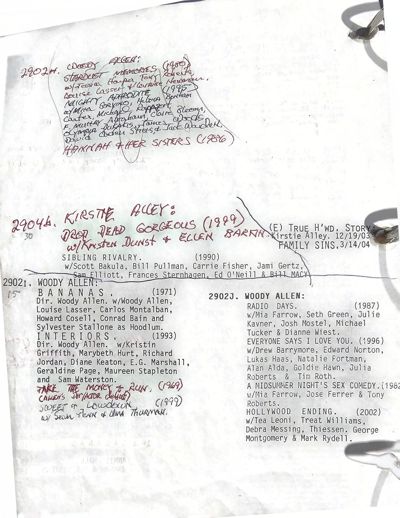 2902H. WOODY ALLEN:
STARDUST MEMORIES (1980)
w/Jessica Harper, Tony Roberts,
Louise Lasser & Laraine Newman.
MIGHTY APHRODITE (1995)
w/Mira Sorvino, Helena Bonham
Carter, Michael Rapaport,
F. Murray Abraham, Claire Bloom,
Olympia Dukakis, Frances
David Ogden Stiers & Jack Warden.
HANNAH & HER SISTERS (1986)
2904b. KIRSTIE ALLEY:
30 DROP DEAD GORGEOUS (1999)
w/Kirsten Dunst & ELLEN BARKIN
(E) TRUE H'WD. STORY
Kirstie Alley. 12/19/03
FAMILY SINS,3/14/04
SIBLING RIVALRY. (1990)
w/Scott Bakula, Bill Pullman, Carrie Fisher, Jami Gertz,
Sam Elliott, Frances Sternhagen, Ed O'Neill & Bill MACY
2902i. WOODY ALLEN:
15 B A N A N A S . (1971)
Dir. Woody Allen. w/Woody Allen,
Louise Lasser, Carlos Montalban,
Howard Cosell, Conrad Bain and
Sylvester Stallone as Hoodlum.
I N T E R I O R S. (1993)
Dir. Woody Allen. w/Kristin
Griffith, Marybeth Hurt, Richard
Jordan, Diane Keaton, E.G. Marshall,
Geraldine Page, Maureen Stapleton
and Sam Waterston.
TAKE THE MONEY & RUN (1969)
SWEET & LOWDOWN (1999)
w/ Sean Penn & Uma Thurman.
2902J. WOODY ALLEN:
RADIO DAYS. (1987)
w/Mia Farrow, Seth Green, Julie
Kavner, Josh Mostel, Michael
Tucker & Dianne Wiest.
EVERYONE SAYS I LOVE YOU. (1996)
w/Drew Barrymore, Edward Norton,
Lukas Haas, Natalie Fortman,
Alan Alda, Goldie Hawn, Julia
Roberts & Tim Roth.
A MIDSUMMER NIGHT'S SEX COMEDY.(1982
w/Mia Farrow, Jose Ferrer & Tony
Roberts.
HOLLYWOOD ENDING. (2002)
w/Tea Leoni, Treat Williams,
Debra Messing, Thiessen. George
Montgomery & Mark Rydell.